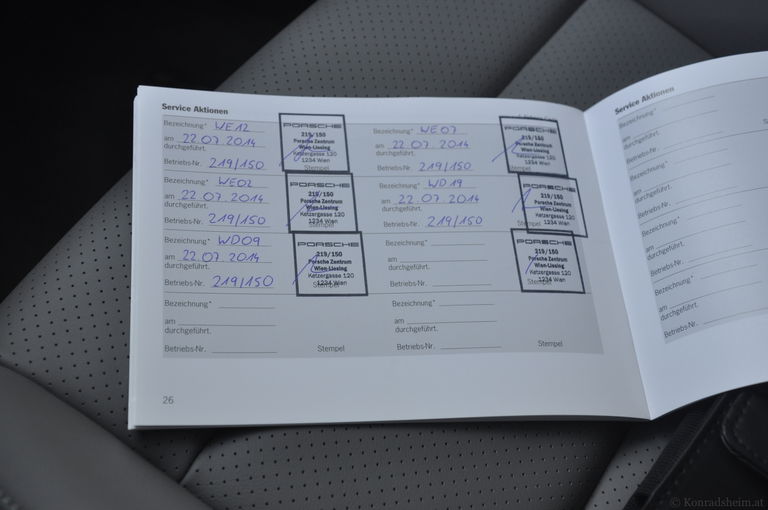 Service Aktionen
Bezeichnung* WE12
am 22.07.2014
durchgeführt.
Betriebs-Nr. 219/150
PORSCHE
219/150
Porsche Zentrum
Wien-Liesing
Ketzergasse 120
1234 Wien
Stempel
Bezeichnung* WE07
am 22.07.2014
durchgeführt.
Betriebs-Nr. 219/150
PORSCHE
219/150
Porsche Zentrum
Wien-Liesing
Ketzergasse 120
1234 Wien
Stempel
Bezeichnung* WE02
am 22.07.2014
durchgeführt.
Betriebs-Nr. 219/150
PORSCHE
219/150
Porsche Zentrum
Wien-Liesing
Ketzergasse 120
1234 Wien
Stempel
Bezeichnung* WD19
am 22.07.2014
durchgeführt.
Betriebs-Nr. 219/150
PORSCHE
219/150
Porsche Zentrum
Wien-Liesing
Ketzergasse 120
1234 Wien
Stempel
Bezeichnung* WD09
am 22.07.2014
durchgeführt.
Betriebs-Nr. 219/150
PORSCHE
219/150
Porsche Zentrum
Wien-Liesing
Ketzergasse 120
1234 Wien
Stempel
Bezeichnung*
am
durchgeführt.
Betriebs-Nr.
PORSCHE
219/150
Porsche Zentrum
Wien-Liesing
Ketzergasse 120
1234 Wien
Stempel
Bezeichnung*
am
durchgeführt.
Betriebs-Nr.
Stempel
Bezeichnung*
am
durchgeführt.
Betriebs-Nr.
Stempel
26
Service Aktionen
Bezeichnung*
am
durchgeführt.
Betriebs-Nr.
Bezeichnung*
am
durchgeführt.
Betriebs-Nr.
Bezeichnung*
am
durchgeführt.
Betriebs-Nr.
Bezeichnung*
am
durchgeführt.
Betriebs-Nr.
© Konradsheim.at